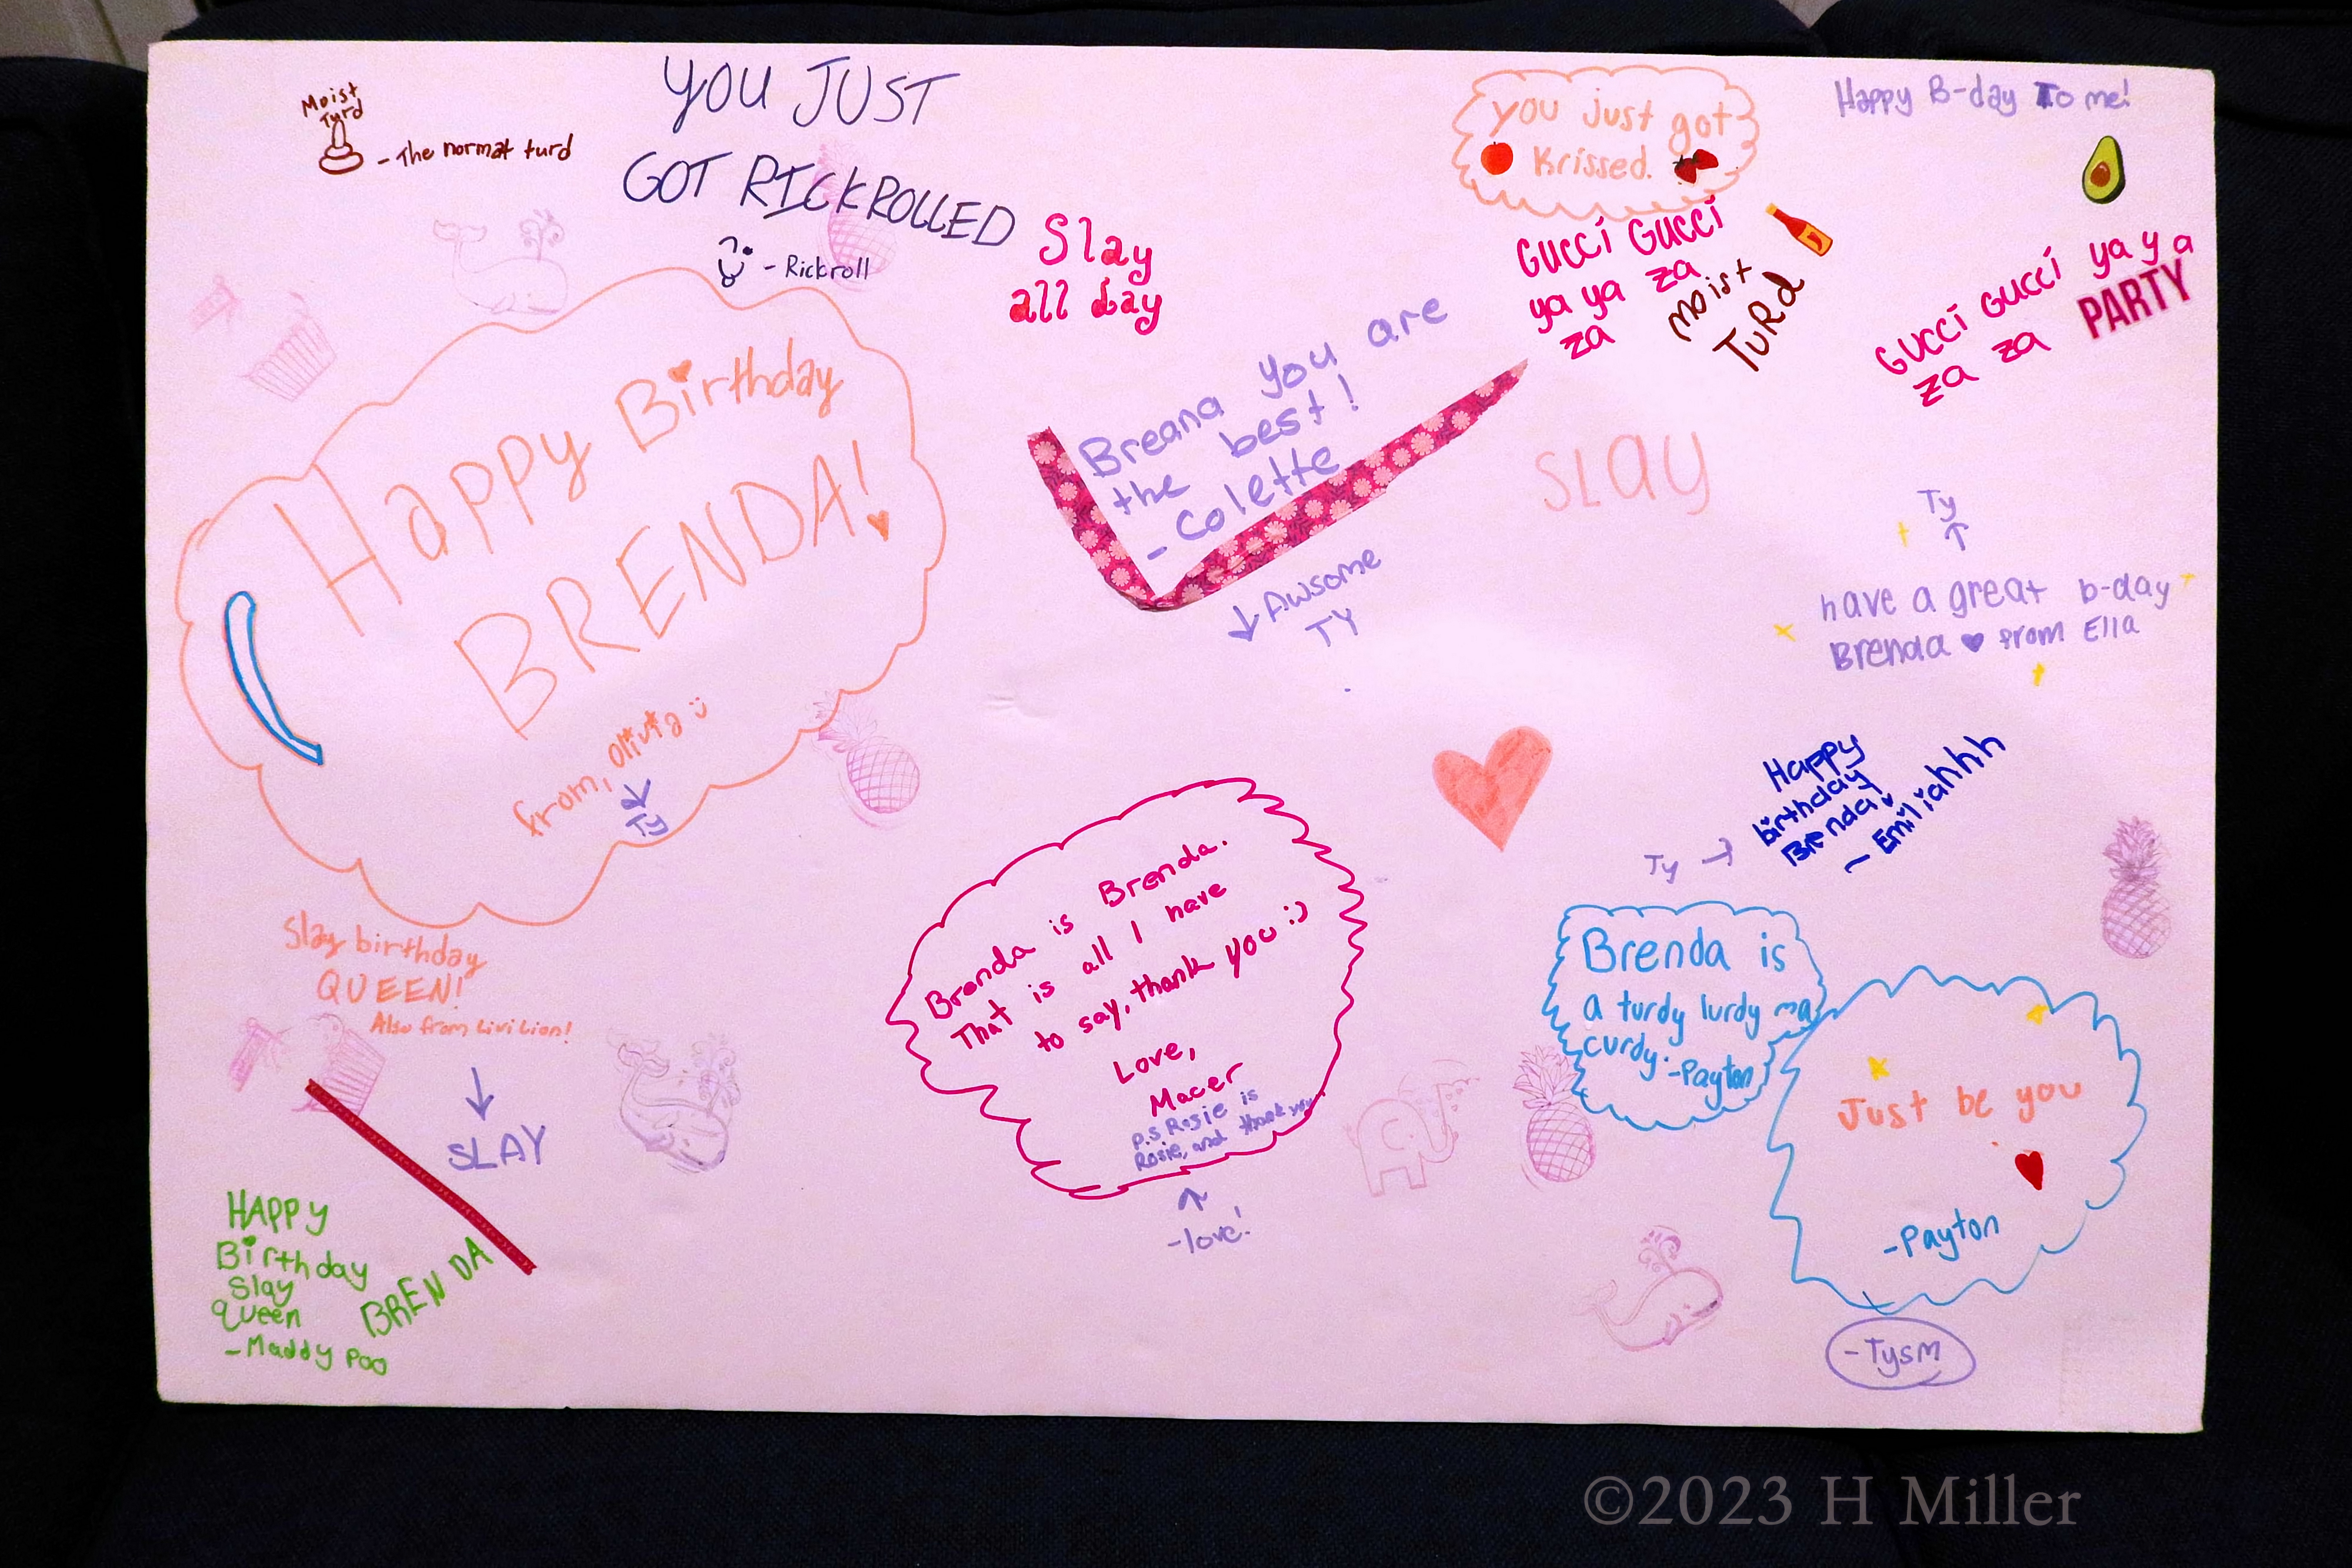 Moist
Turd
- The normat turd
YOU JUST
GOT RICKROLLED
- Rickroll
Slay
all day
you just got
Krissed.
Happy B-day To me!
GUCCI GUCCI
ya ya za
za
MOIST
TURd
GUCCI GUCCI ya ya
za za
PARTY
Happy Birthday
BRENDA!
from, Olivia
Ty
Breana you are
the best!
- Colette
Awsome
TY
SLAY
Ty
have a great b-day
Brenda from Ella
Happy
birthday
Brenda!
~ Emiliahhh
Ty
Slay birthday
QUEEN!
Also from Livi Lion!
SLAY
HAPPY
Birthday
Slay
Queen
BRENDA
- Maddy Poo
Brenda is Brenda.
That is all I have
to say, thank you :)
Love,
Macer
p.s Rosie is
Rosie, and thank you
-love!
Brenda is
a turdy lurdy ma
curdy. -Payton
Just be you
-Payton
-Tysm
©2023 H Miller